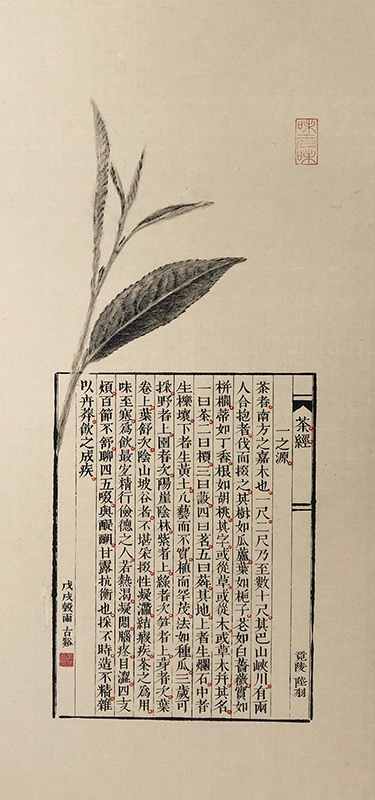 茶經
一之源
竟陵 陸羽
茶者南方之嘉木也一尺二尺乃至數十尺其巴山峽川有兩
人合抱者伐而掇之其樹如瓜蘆葉如梔子花如白薔薇實如
栟櫚蒂如丁香根如胡桃其字或從草或從木或草木并其名
一曰茶二曰檟三曰蔎四曰茗五曰荈其地上者生爛石中者
生櫟壤下者生黃土凡藝而不實植而罕茂法如種瓜三歲可
採野者上園者次陽崖陰林紫者上綠者次笋者上芽者次葉
卷上葉舒次陰山坡谷者不堪采掇性凝滯結瘕疾茶之為用
味至寒為飲最宜精行儉德之人若熱渴凝悶腦疼目澀四支
煩百節不舒聊四五啜與醍醐甘露抗衡也採不時造不精雜
以卉莽飲之成疾
戊戌穀雨 古谿